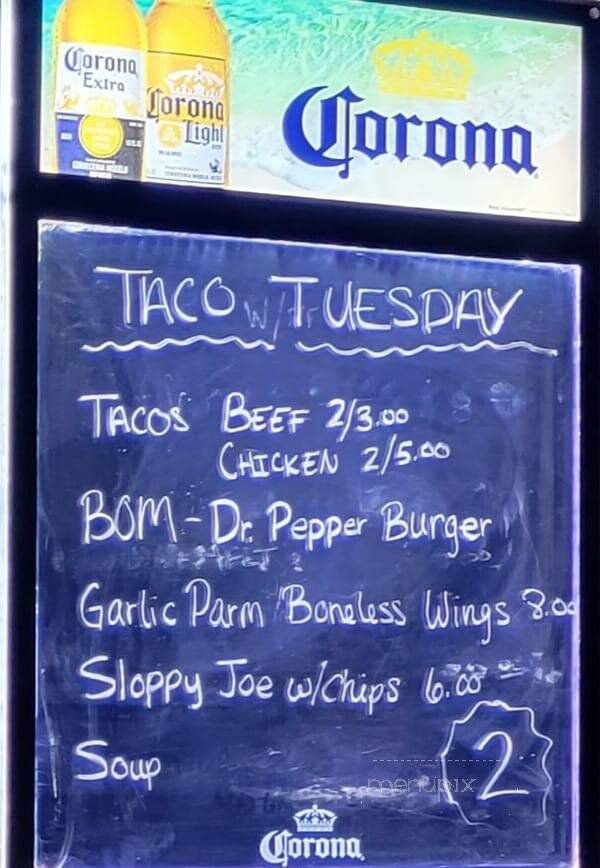 Corona
Extra
Corona
Light
Corona
TACO TUESDAY
TACOS BEEF 2/3.00
CHICKEN 2/5.00
BOM - Dr. Pepper Burger
Garlic Parm Boneless Wings 8.00
Sloppy Joe w/chips 6.00
Soup
2
menupix
Corona